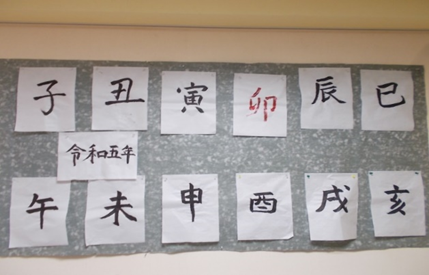 子 丑 寅 卯 辰 巳
令和五年
午 未 申 酉 戌 亥